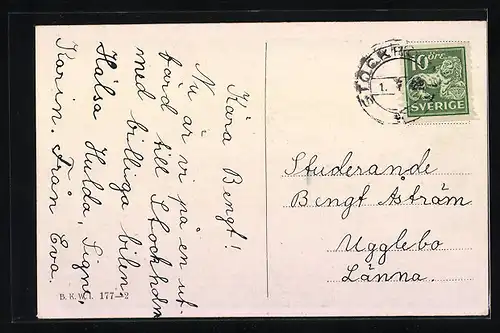 Kära Bengt!
Nu är vi på en ut-
färd till Stockholm
med billiga bilen.
Hälsa Hulda, Signe,
Karin. Från Eva.
B.K.W.I. 177-2
STOCKH
1. 7
10 öre
SVERIGE
Studerande
Bengt Åström
Ugglebo
Länna.